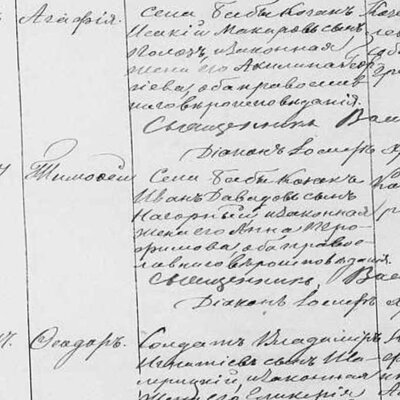 Агафія.
Села Бабы Козакъ
Исакій Макаровъ сынъ
и законная
жена его Акилина Геор
гіева, оба православ
наго вѣроисповѣданія.
Священникъ Вас
Діаконъ Іосифъ
Тимофей
Села Бабы Козакъ
Иванъ Давидовъ сынъ
Нагорный и законная
жена его Анна Тро-
фимова, оба право-
славнаго вѣроисповѣданія.
Священникъ Вас
Діаконъ Іосифъ
Ѳеодоръ.
Солдатъ Владиміръ
Игнатіевъ сынъ
и законная
жена его Гликерія